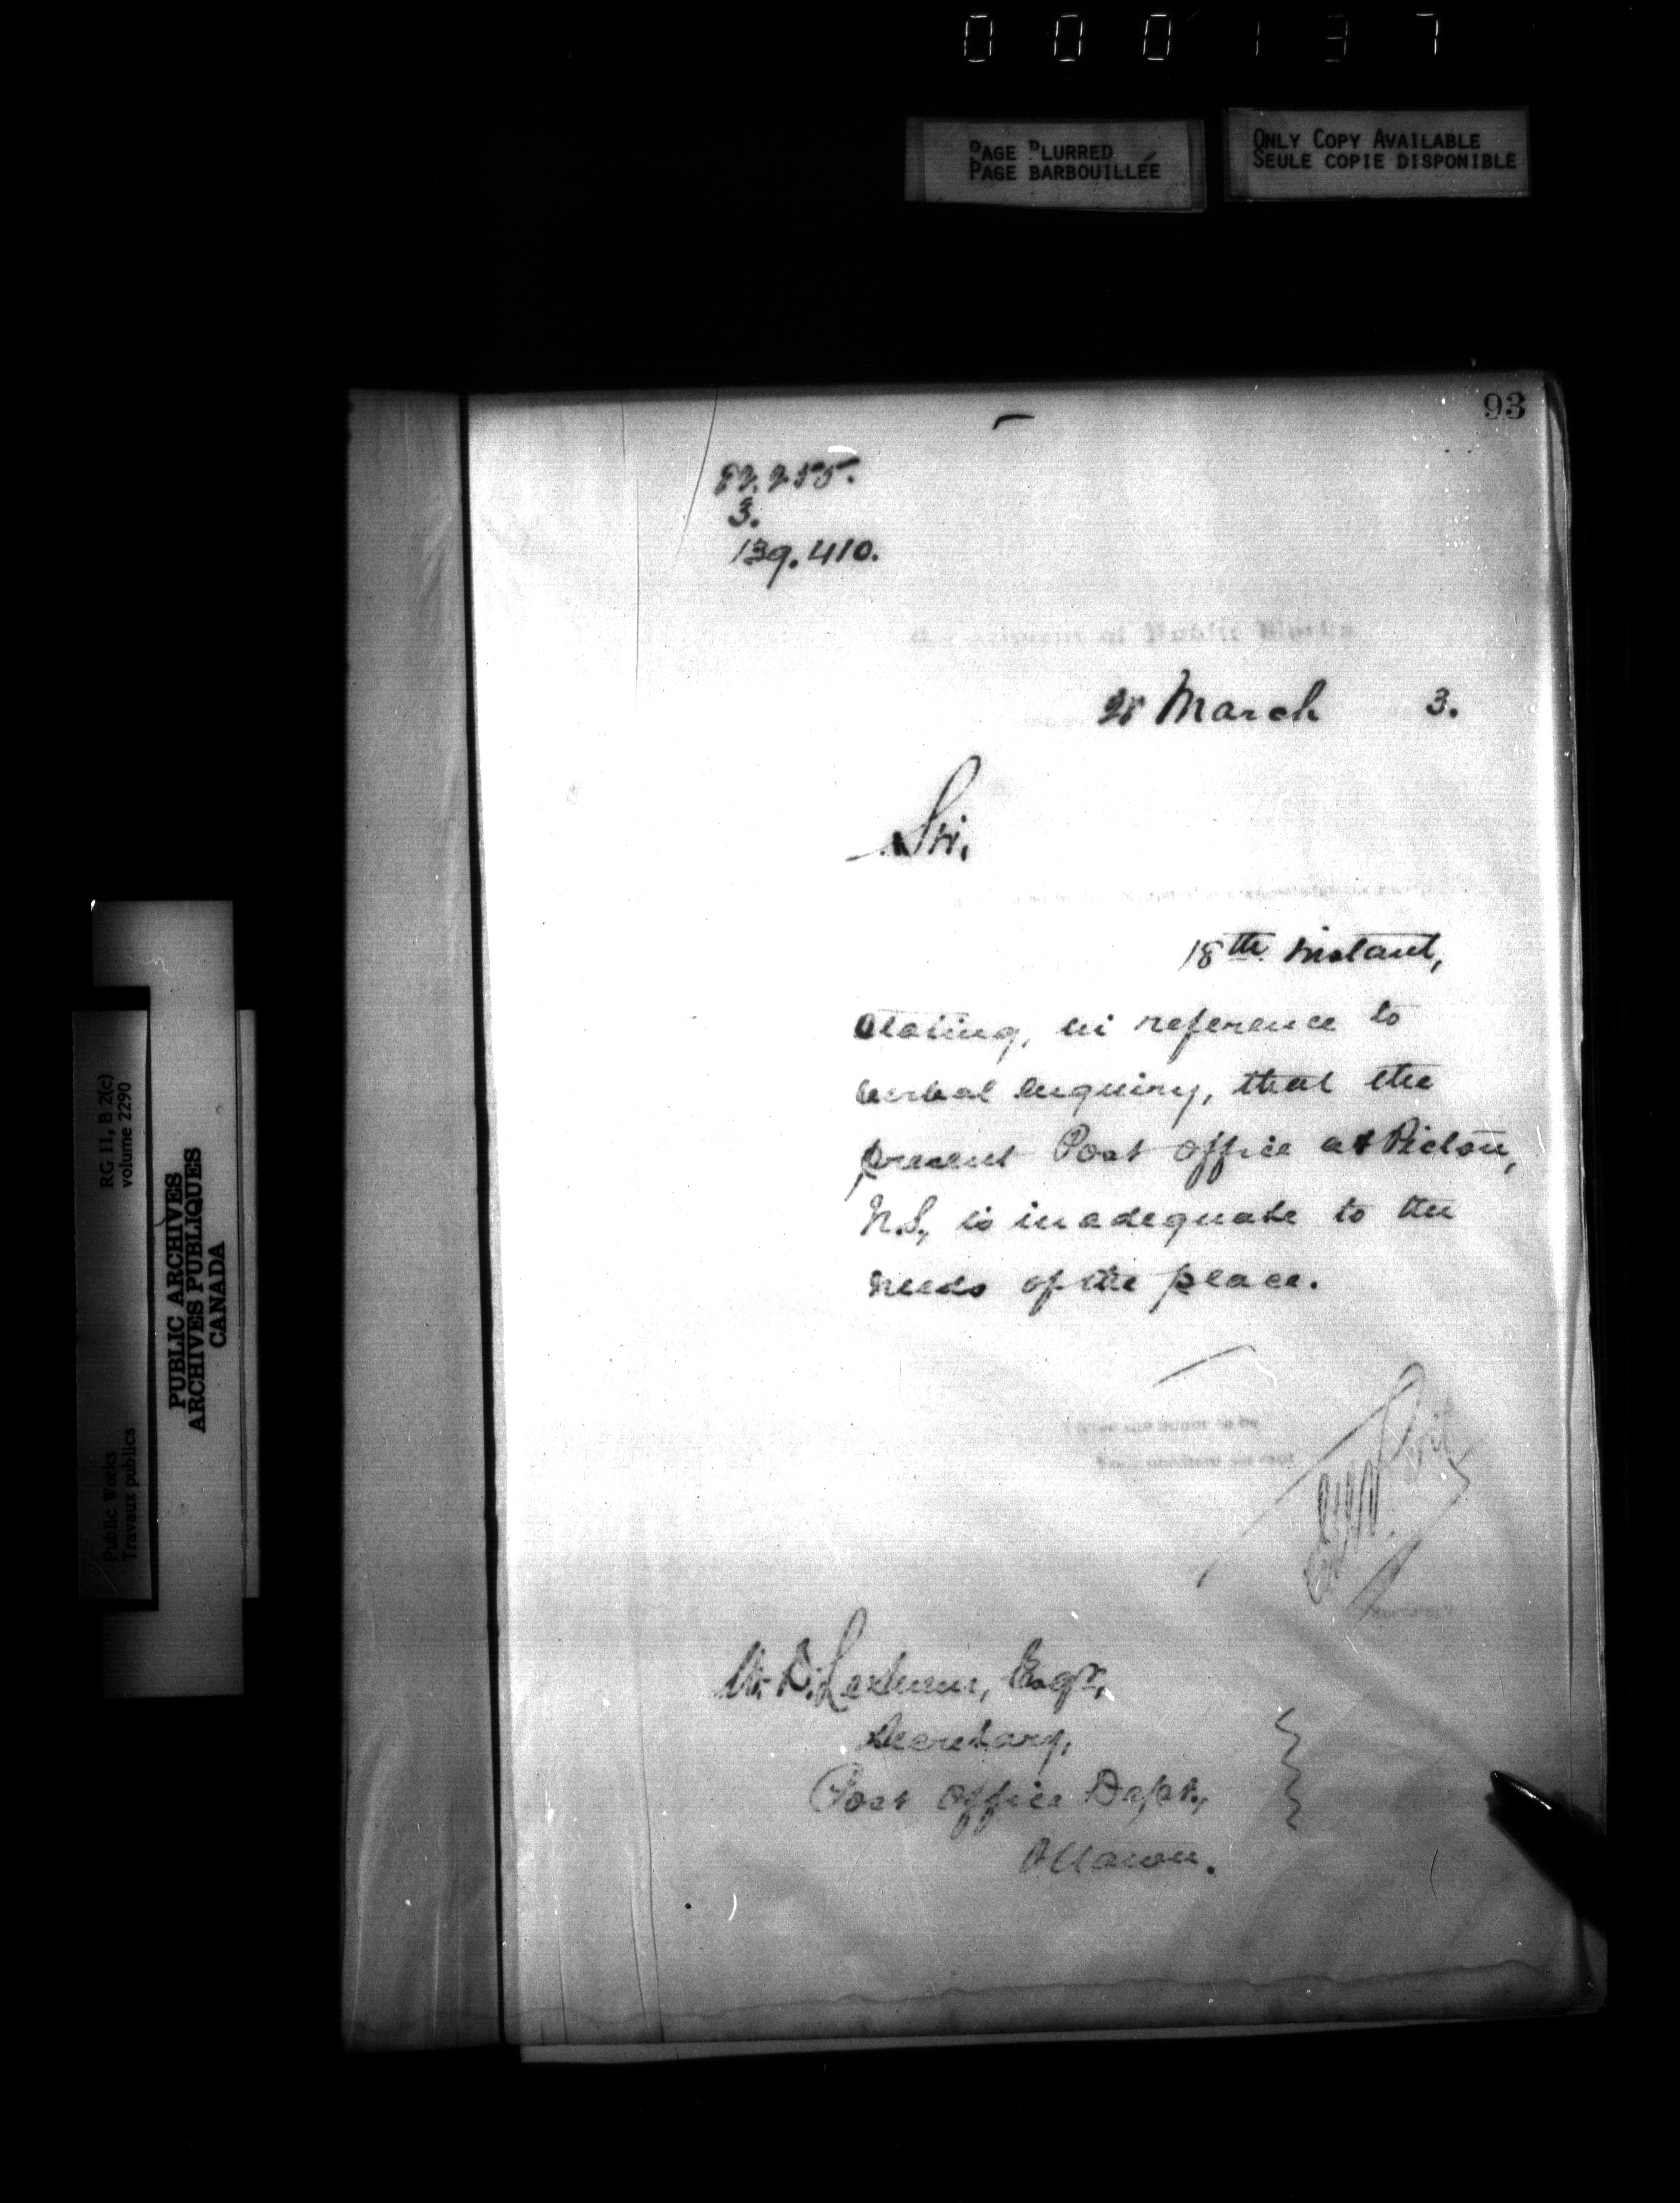 000137
PAGE BLURRED
PAGE BARBOUILLÉE
ONLY COPY AVAILABLE
SEULE COPIE DISPONIBLE
93
3.
139.410.
Department of Public Works
28 March 3.
Sir,
18th instant,
stating, in reference to
verbal enquiry, that the
present Post Office at Pictou,
N.S., is inadequate to the
needs of the place.
I have the honor to be
Your obedient servant
Secretary
W. D. LeSueur, Esqr,
Secretary,
Post Office Dept.,
Ottawa.
RG 11, B 2(c)
volume 2290
Public Works
Travaux publics
PUBLIC ARCHIVES
ARCHIVES PUBLIQUES
CANADA